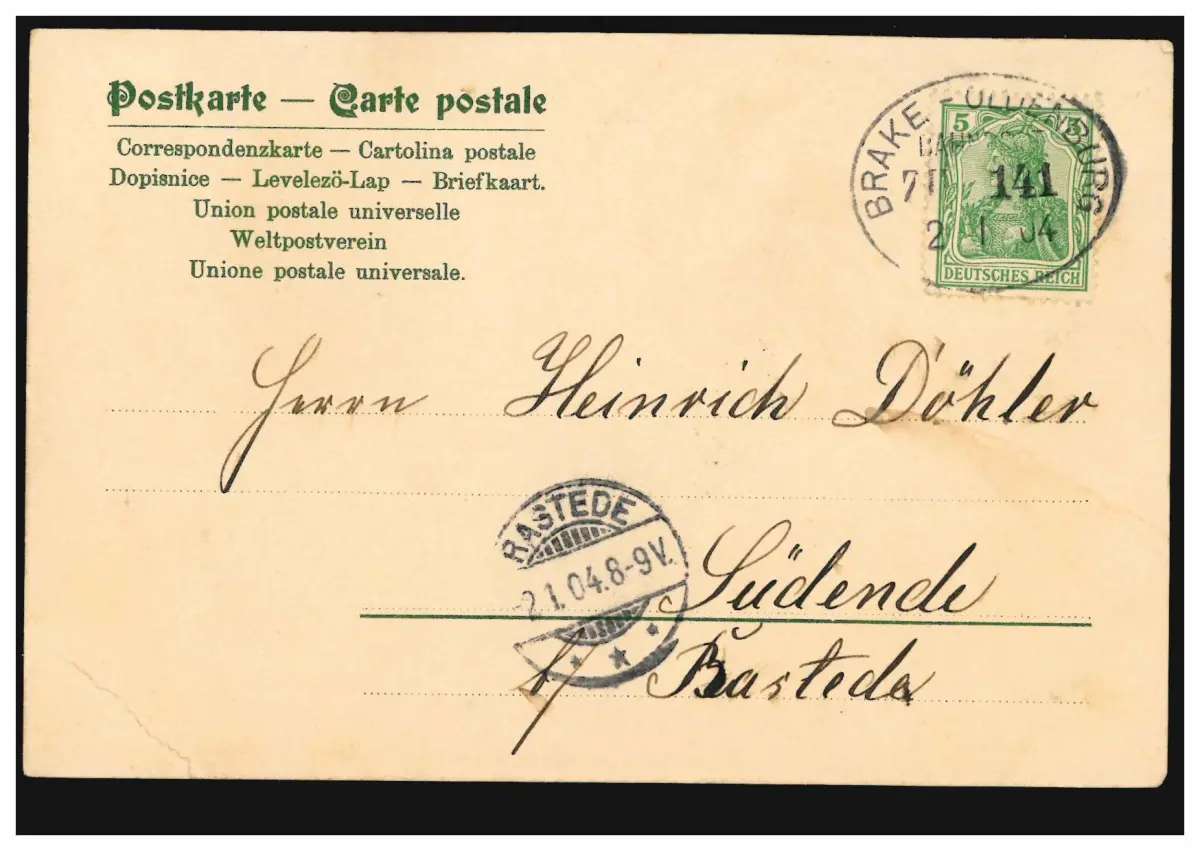 Postkarte — Carte postale
Correspondenzkarte — Cartolina postale
Dopisnice — Levelezö-Lap — Briefkaart.
Union postale universelle
Weltpostverein
Unione postale universale.
BRAKE - OLDENBURG
BAHNPOST
141
2 1 04
5 5
DEUTSCHES REICH
Herrn Heinrich Döhler
RASTEDE
2.1.04.8-9V.
Südende
b/ Rastede